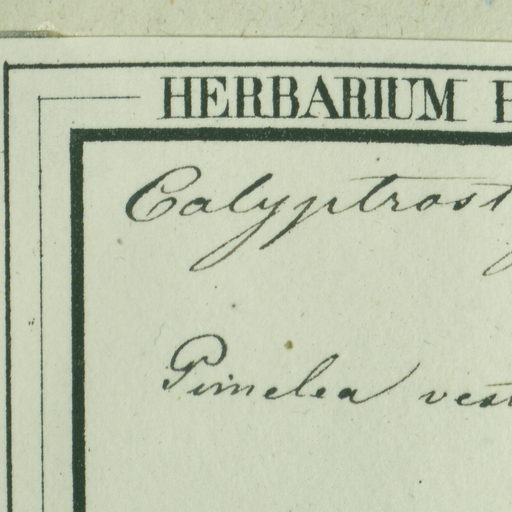 HERBARIUM
Calyptrost
Pimelea vest